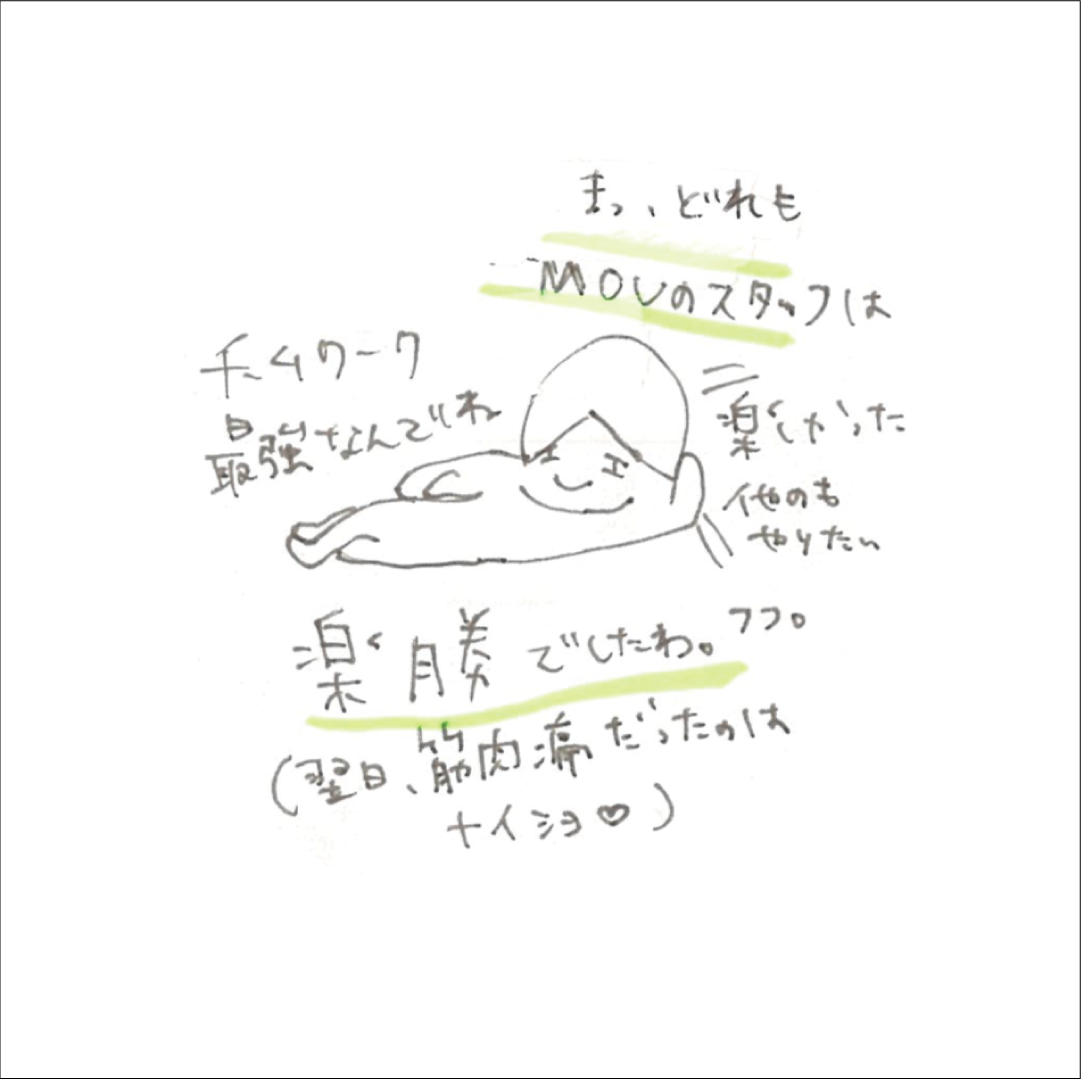 まっ、どれも
MOUのスタッフは
チームワーク
最強なんでねヮ
楽しかった
他のも
やりたい
楽勝でしたわ。フフ。
(翌日、筋肉痛だったのは
ナイショ♡)